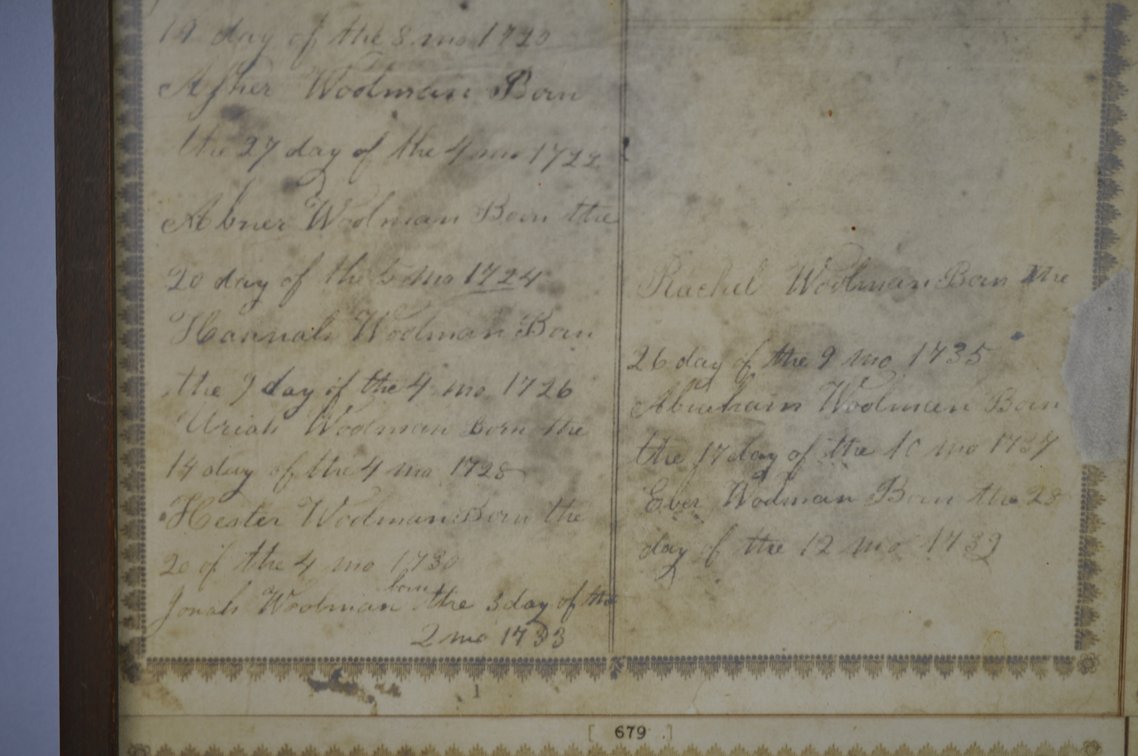 19 day of the 8 mo 1720
Asher Woolman Born
the 27 day of the 4 mo 1722
Abner Woolman Born the
20 day of the 5 mo 1724
Hannah Woolman Born
the 9 day of the 4 mo 1726
Uriah Woolman Born the
14 day of the 4 mo 1728
Hester Woolman Born the
20 of the 4 mo 1730
Jonah Woolman born the 3 day of the
2 mo 1733
Rachel Woolman Born the
26 day of the 9 mo 1735
Abraham Woolman Born
the 17 day of the 10 mo 1737
Eber Woolman Born the 28
day of the 12 mo 1739
1
[ 679 ]